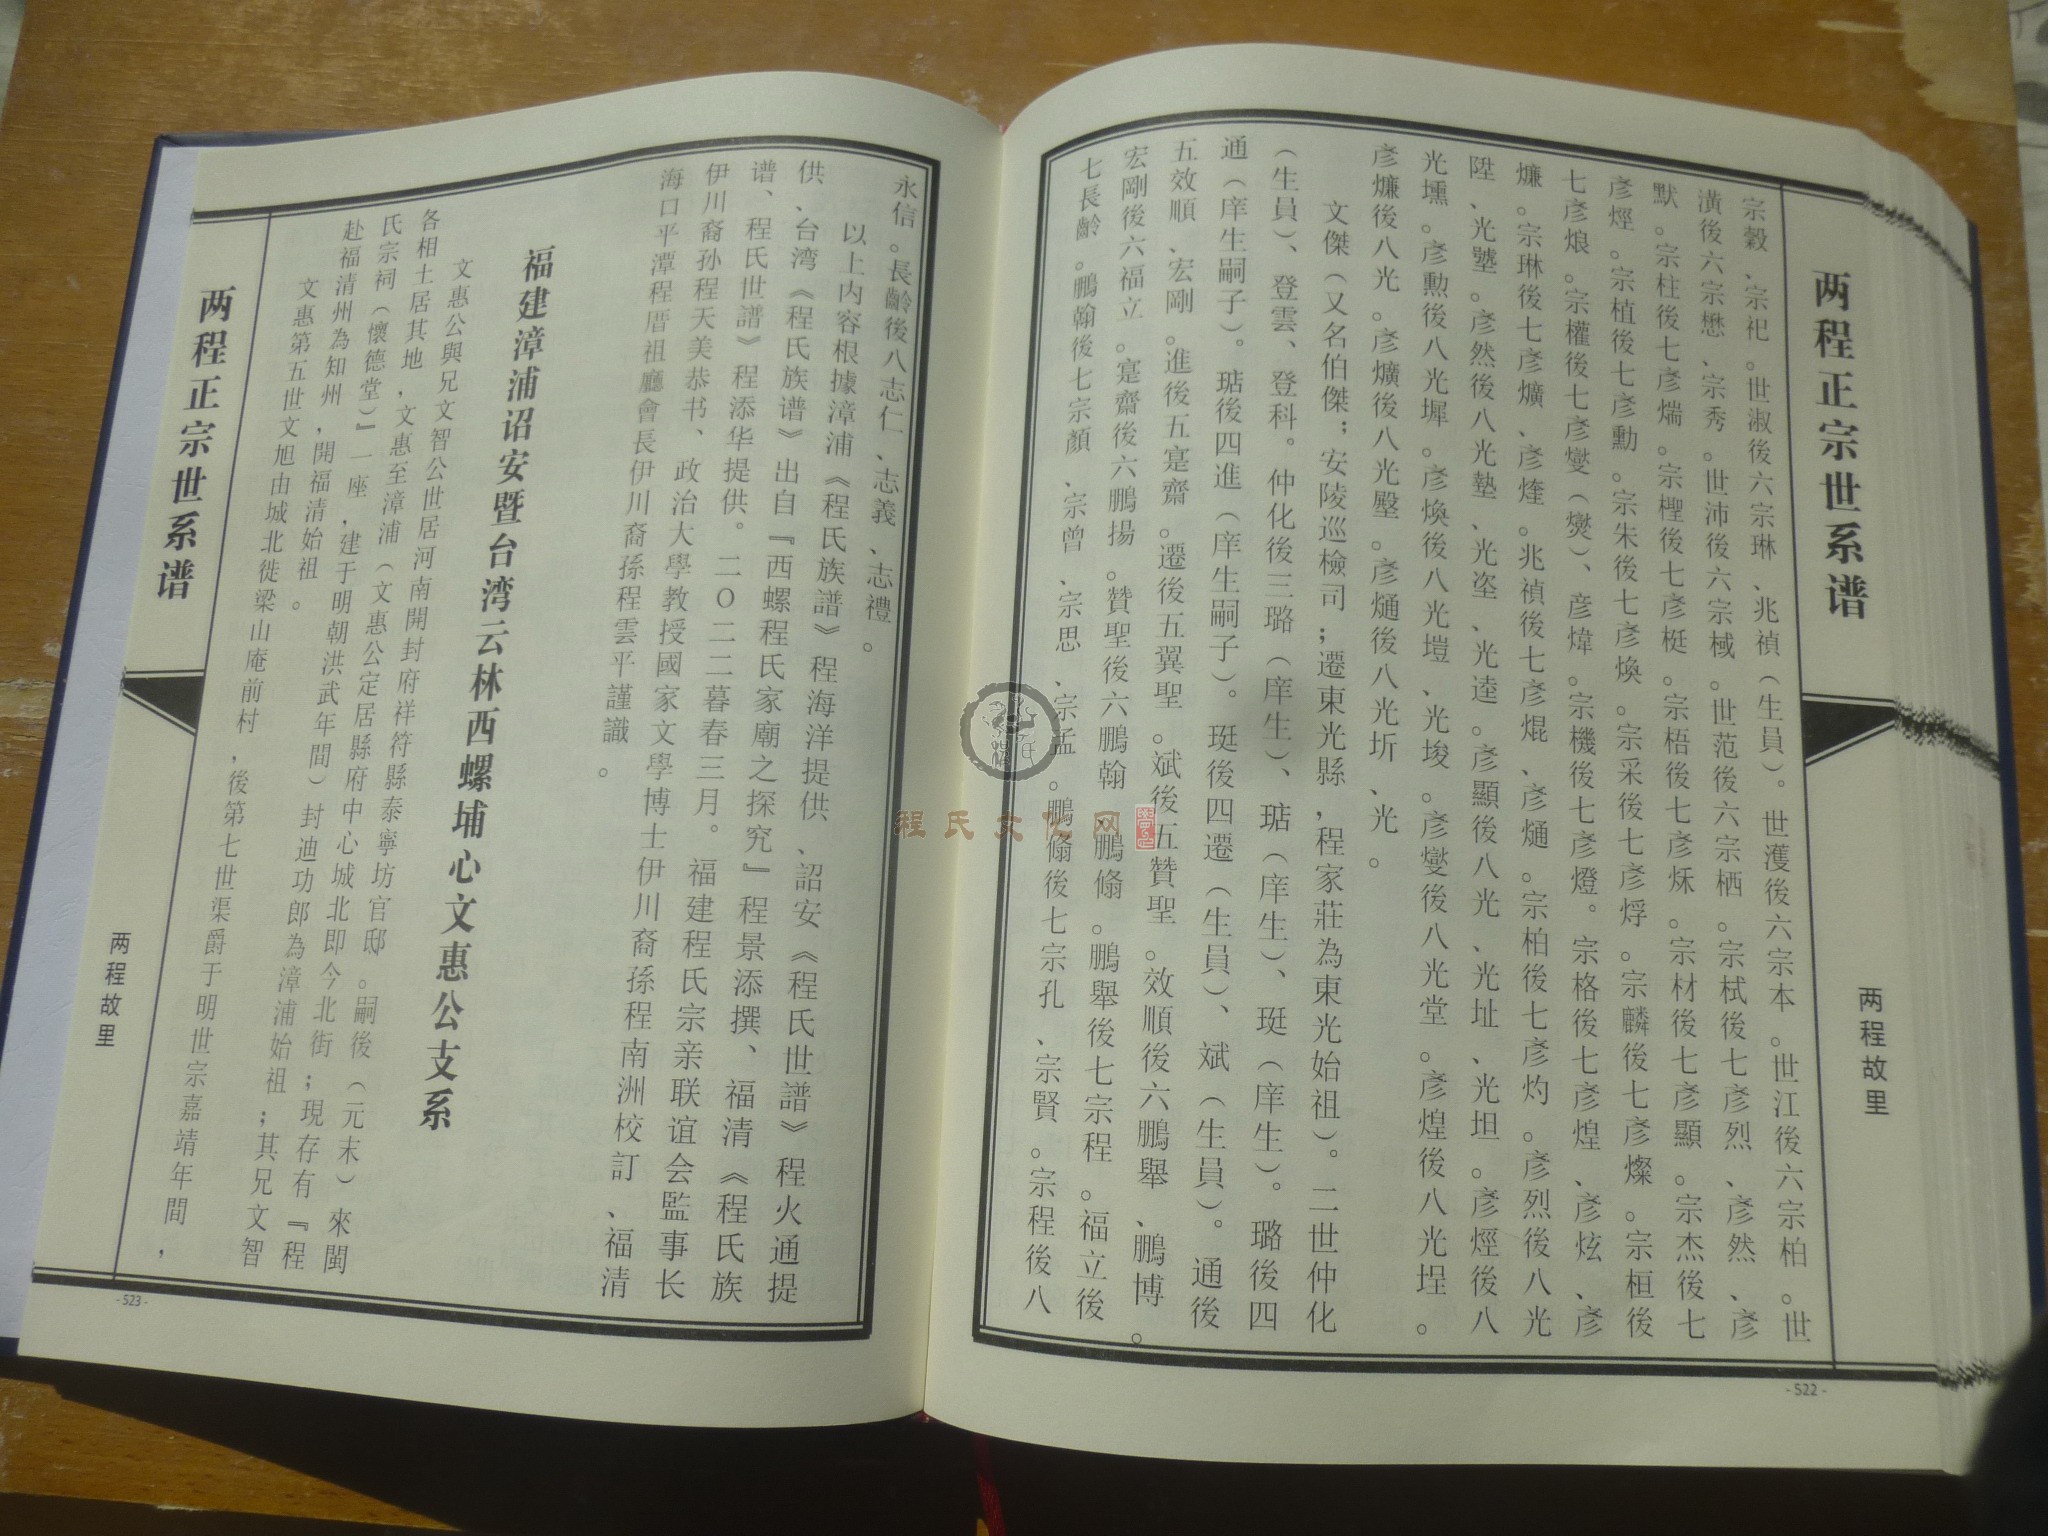 两程正宗世系谱
两程故里
-522-
宗穀、宗祀。世淑後六宗琳、兆禎（生員）。世濩後六宗本。世江後六宗柏。世
潢後六宗懋、宗秀。世沛後六宗棫。世范後六宗栖。宗栻後七彥烈、彥然、彥
默。宗柱後七彥煓。宗檉後七彥梃。宗梧後七彥秌。宗材後七彥顯。宗杰後七
彥烴。宗植後七彥勳。宗朱後七彥煥。宗采後七彥烰。宗麟後七彥燦。宗桓後
七彥烺。宗權後七彥燮（爕）、彦煒。宗機後七彥燈。宗格後七彥煌、彥炫、彥
燫。宗琳後七彥爌、彥煃。兆禎後七彥焜、彥熥。宗柏後七彥灼。彥烈後八光
陞、光塈。彥然後八光墊、光垐、光逵。彥顯後八光、光址、光坦。彥烴後八
光壎。彥勳後八光墀。彥煥後八光塏、光埈。彥燮後八光堂。彥煌後八光埕。
彥燫後八光。彥爌後八光壂。彥熥後八光圻、光。
文傑（又名伯傑；安陵巡檢司；遷東光縣，程家莊為東光始祖）。二世仲化
（生員）、登雲、登科。仲化後三璐（庠生）、琽（庠生）、珽（庠生）。璐後四
通（庠生嗣子）。琽後四進（庠生嗣子）。珽後四遷（生員）、斌（生員）。通後
五效順、宏剛。進後五寔齋。遷後五翼聖。斌後五贊聖。效順後六鵬舉、鵬博。
宏剛後六福立。寔齋後六鵬揚。贊聖後六鵬翰、鵬翛。鵬舉後七宗程。福立後
七長齡。鵬翰後七宗顏、宗曾、宗思、宗孟。鵬翛後七宗孔、宗賢。宗程後八
永信。長齡後八志仁、志義、志禮。
以上内容根據漳浦《程氏族譜》程海洋提供、詔安《程氏世譜》程火通提
供、台湾《程氏族谱》出自『西螺程氏家廟之探究』程景添撰、福清《程氏族
谱、程氏世譜》程添华提供。二〇二二暮春三月。福建程氏宗亲联谊会監事长
伊川裔孙程天美恭书、政治大學教授國家文學博士伊川裔孫程南洲校訂、福清
海口平潭程厝祖廳會長伊川裔孫程雲平謹識。
福建漳浦诏安暨台湾云林西螺埔心文惠公支系
文惠公與兄文智公世居河南開封府祥符縣泰寧坊官邸。嗣後（元末）來閩
各相土居其地，文惠至漳浦（文惠公定居縣府中心城北即今北街；現存有『程
氏宗祠（懷德堂）』一座，建于明朝洪武年間）封迪功郎為漳浦始祖；其兄文智
赴福清州為知州，開福清始祖。
文惠第五世文旭由城北徙梁山庵前村，後第七世渠爵于明世宗嘉靖年間，
两程正宗世系谱
两程故里
-523-
程氏文化网